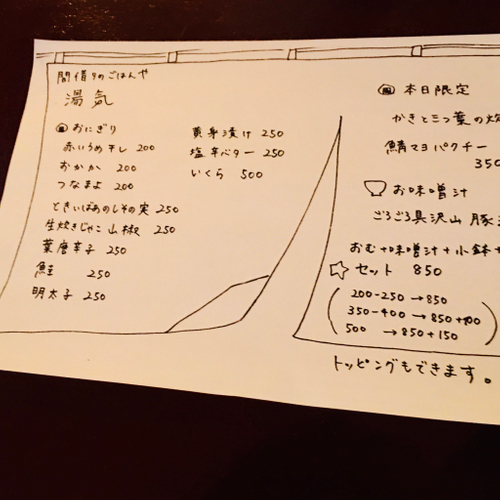 間借りのごはんや
湯気
おにぎり
赤いうめ干し 200
おかか 200
つなまよ 200
ときいばあのしその実 250
生炊きじゃこ山椒 250
葉唐辛子 250
鮭 250
明太子 250
黄身漬け 250
塩辛バター 250
いくら 500
本日限定
かきと三つ葉の炊
鯖マヨパクチー
350
お味噌汁
ごろごろ具沢山 豚
おむ+味噌汁+小鉢
☆セット 850
200-250 → 850
350-400 → 850+100
500 → 850+150
トッピングもできます。